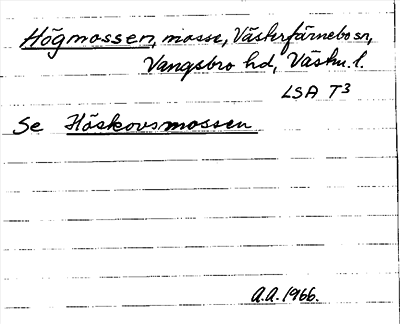 Högmossen, mosse, Västerfärnebo sn,
Vangsbro hd, Västm. l.
LSA T3
Se Höskovsmossen
A.A. 1966.